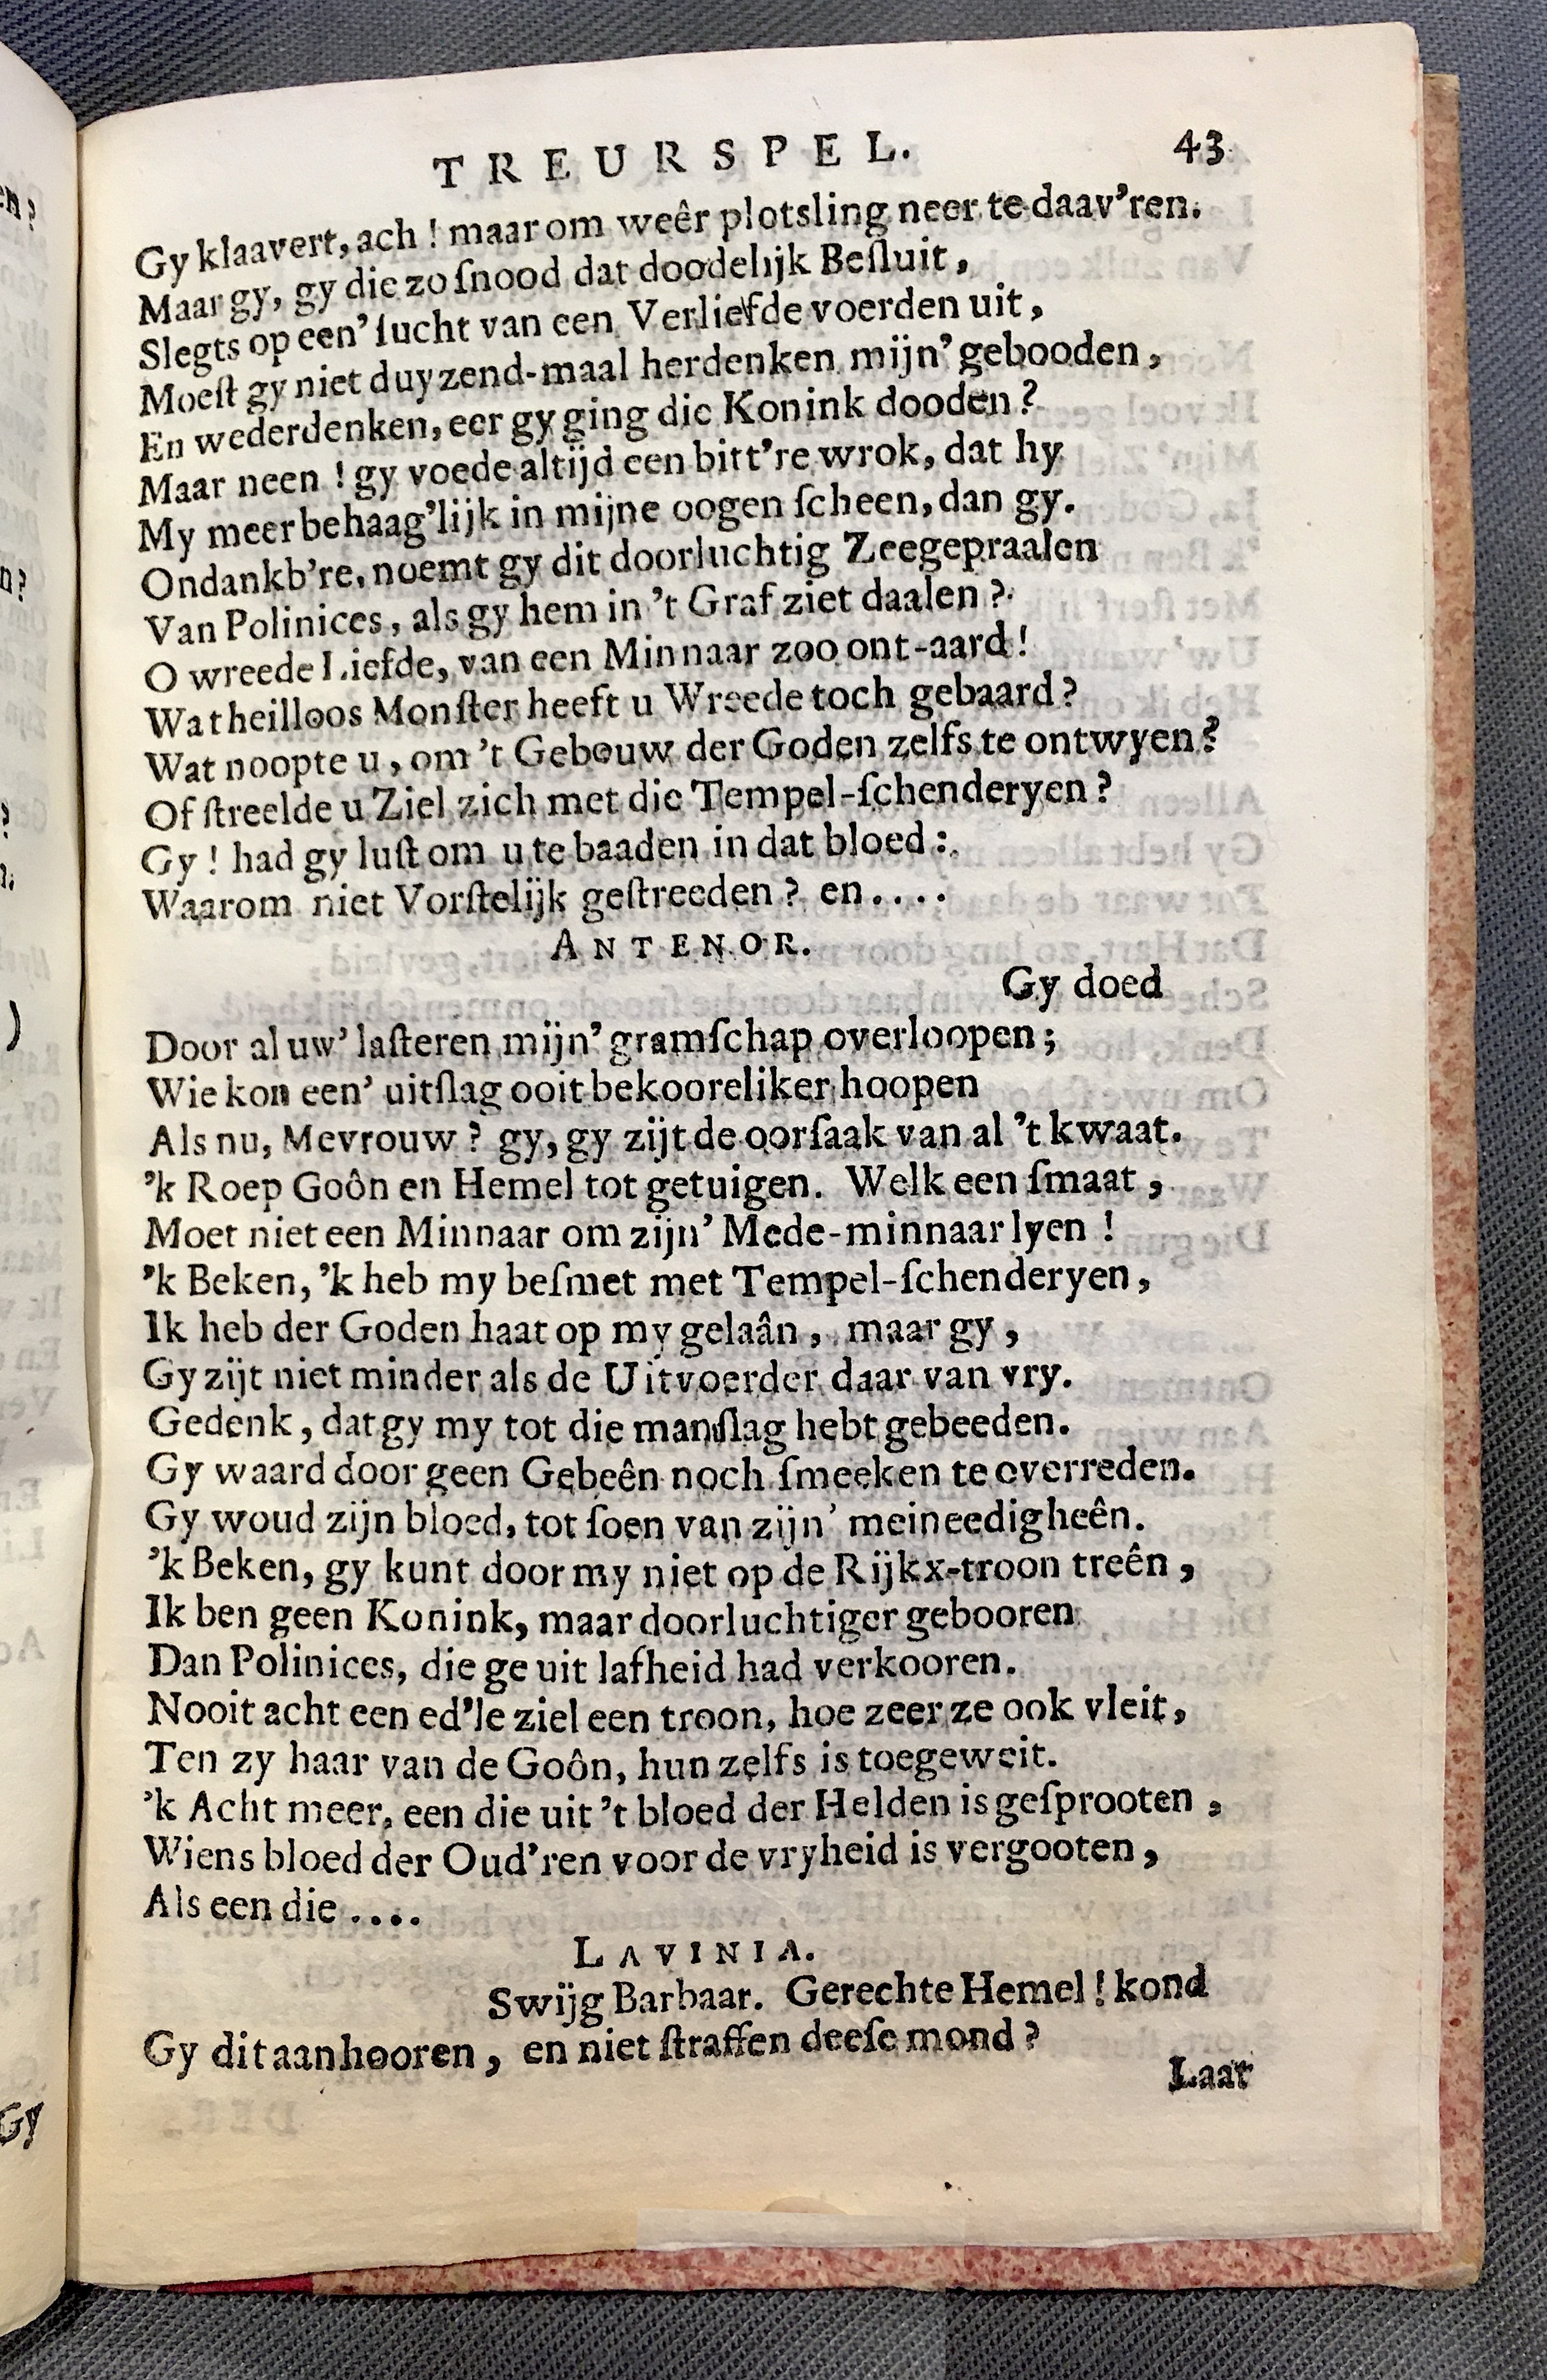 TREURSPEL. 43
Gy klaavert, ach ! maar om weêr plotsling neer te daav’ren.
Maar gy, gy die zo ſnood dat doodelijk Beſluit,
Slegts op een’ ſucht van een Verliefde voerden uit,
Moeſt gy niet duyzend-maal herdenken mijn’ gebooden,
En wederdenken, eer gy ging die Konink dooden?
Maar neen ! gy voede altijd een bitt’re wrok, dat hy
My meer behaag’lijk in mijne oogen ſcheen, dan gy.
Ondankb’re, noemt gy dit doorluchtig Zeegepraalen
Van Polinices, als gy hem in ’t Graf ziet daalen?
O wreede Liefde, van een Minnaar zoo ont-aard!
Wat heilloos Monſter heeft u Wreede toch gebaard?
Wat noopte u, om ’t Gebouw der Goden zelfs te ontwyen?
Of ſtreelde u Ziel zich met die Tempel-ſchenderyen?
Gy ! had gy luſt om u te baaden in dat bloed:
Waarom niet Vorſtelijk geſtreeden? en....
ANTENOR.
Gy doed
Door al uw’ laſteren mijn’ gramſchap overloopen;
Wie kon een’ uitſlag ooit bekooreliker hoopen
Als nu, Mevrouw? gy, gy zijt de oorſaak van al ’t kwaat.
’k Roep Goôn en Hemel tot getuigen. Welk een ſmaat,
Moet niet een Minnaar om zijn’ Mede-minnaar lyen !
’k Beken, ’k heb my beſmet met Tempel-ſchenderyen,
Ik heb der Goden haat op my gelaân, maar gy,
Gy zijt niet minder als de Uitvoerder daar van vry.
Gedenk, dat gy my tot die manſlag hebt gebeeden.
Gy waard door geen Gebeên noch ſmeeken te overreden.
Gy woud zijn bloed, tot ſoen van zijn’ meineedigheên.
’k Beken, gy kunt door my niet op de Rijkx-troon treên,
Ik ben geen Konink, maar doorluchtiger gebooren
Dan Polinices, die ge uit lafheid had verkooren.
Nooit acht een ed’le ziel een troon, hoe zeer ze ook vleit,
Ten zy haar van de Goôn, hun zelfs is toegeweit.
’k Acht meer, een die uit ’t bloed der Helden is geſprooten,
Wiens bloed der Oud’ren voor de vryheid is vergooten,
Als een die ....
LAVINIA.
Swijg Barbaar. Gerechte Hemel ! kond
Gy dit aanhooren, en niet ſtraffen deeſe mond?
Laat